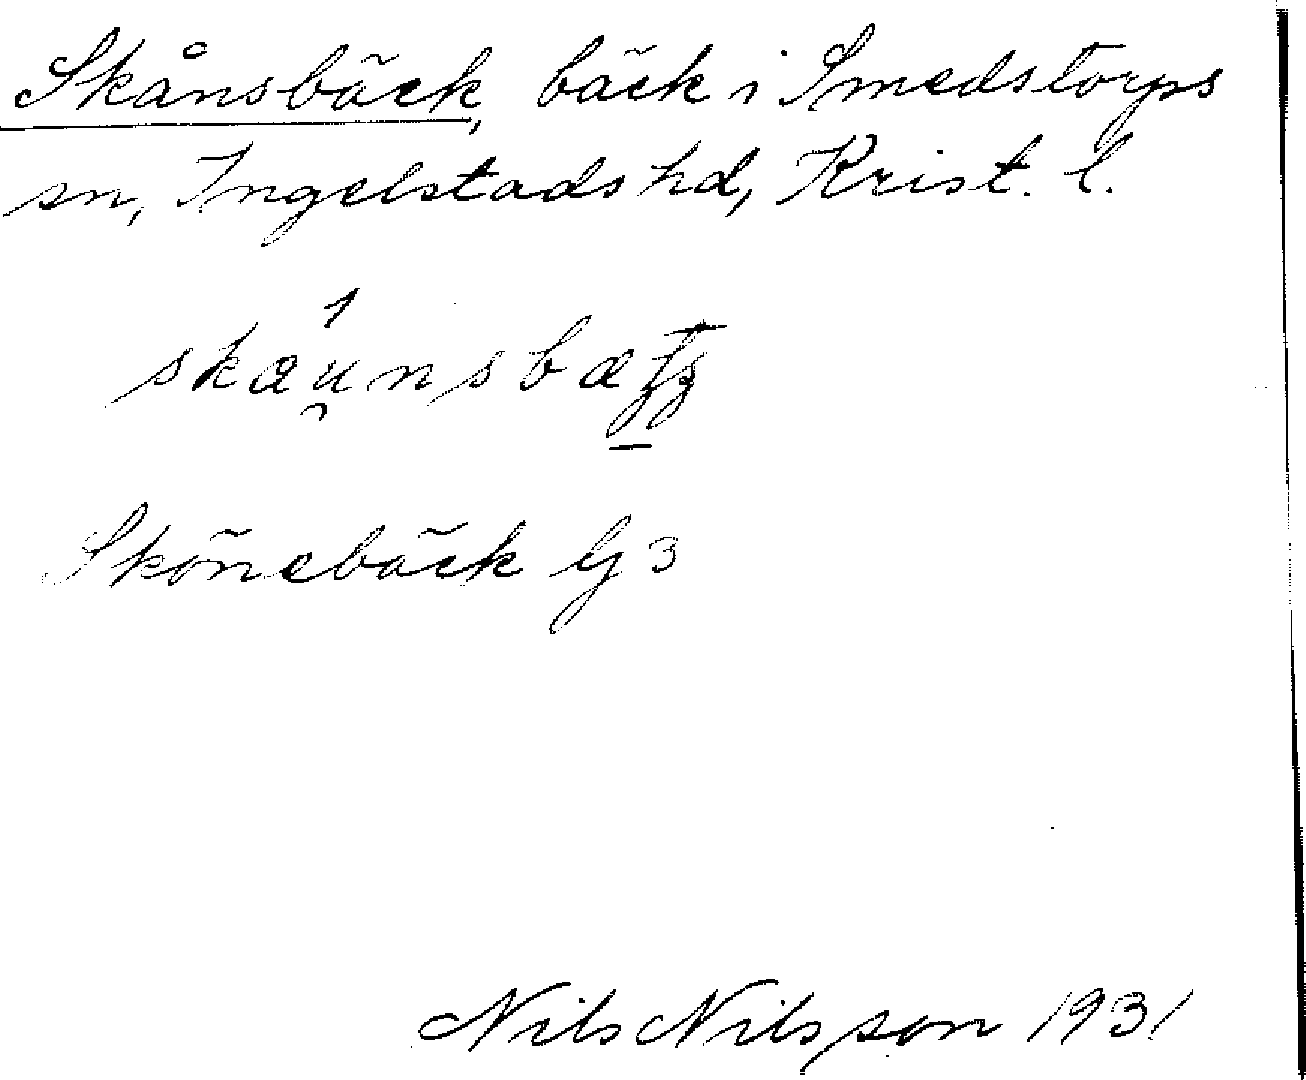 Skånsbäck, bäck i Smedstorps
sn, Ingelstads hd, Krist. l.
Skönebäck G 3
Nils Nilsson 1931